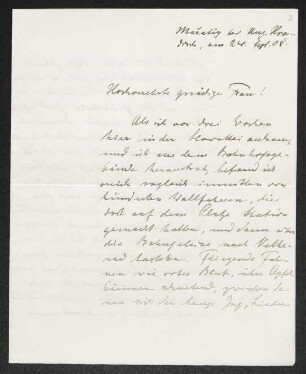 2
Maiatig bei Ung. Hra-
disch, am 24. Sept. 08.
Hochverehrte gnädige Frau!
Als ich vor drei Wochen
hier in der Slowakei ankam,
und ich aus dem Bahnhofsge-
bäude heraustrat, befand ich
mich sogleich inmitten von
hunderten Wallfahrern, die
dort auf dem Platze Station
gemacht hatten, und dann über
die Bahngeleise nach Velle-
rad. Fliegende Fah-
nen wie rotes Blut, über Apfel-
bäumen
der lange Zug, Lieder